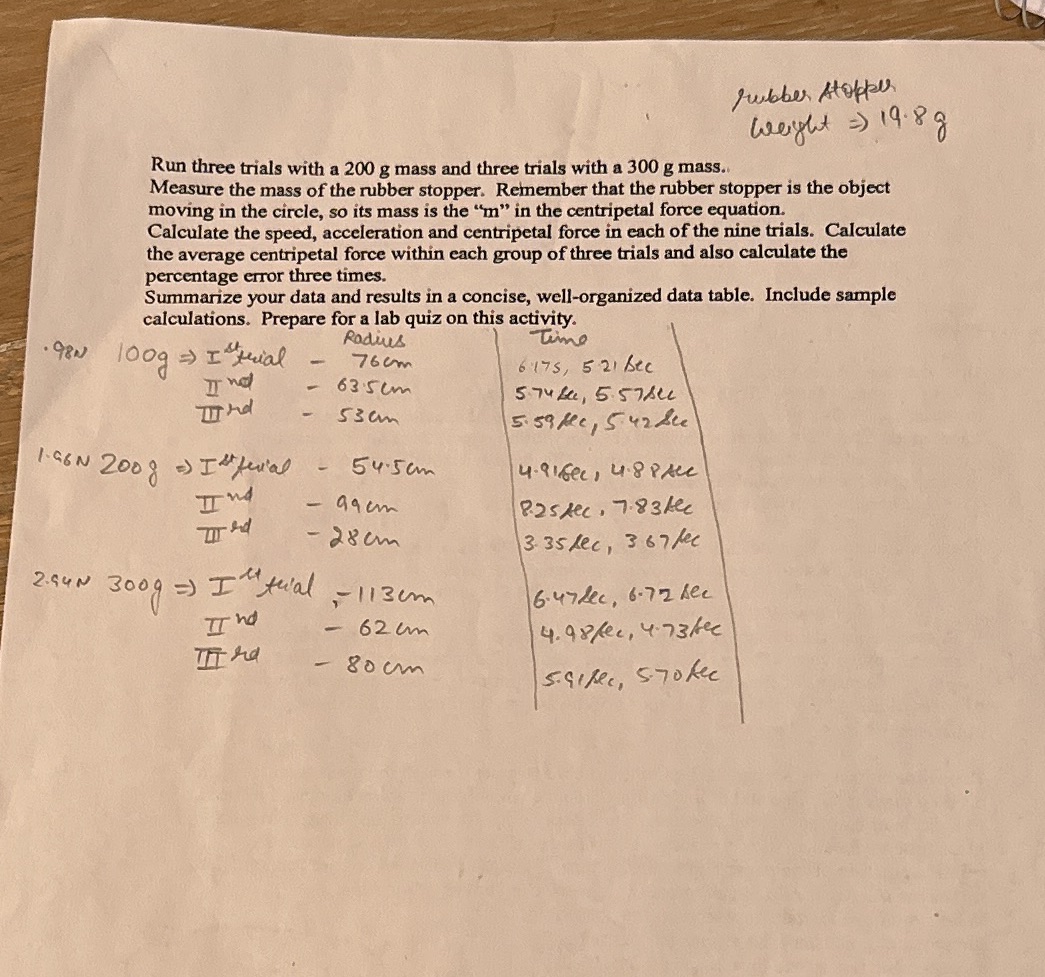 rubber stopper
weight ⇒ 19.8g
Run three trials with a 200 g mass and three trials with a 300 g mass..
Measure the mass of the rubber stopper. Remember that the rubber stopper is the object
moving in the circle, so its mass is the “m” in the centripetal force equation.
Calculate the speed, acceleration and centripetal force in each of the nine trials. Calculate
the average centripetal force within each group of three trials and also calculate the
percentage error three times.
Summarize your data and results in a concise, well-organized data table. Include sample
calculations. Prepare for a lab quiz on this activity.
Radius Time
.98N 100g ⇒ Ist trial - 76cm 6.17s, 5.21 sec
IInd - 63.5cm 5.74 sec, 5.57 sec
IIIrd - 53cm 5.59 sec, 5.42 sec
1.96N 200g ⇒ Ist trial - 54.5cm 4.91 sec, 4.88 sec
IInd - 99cm 8.25 sec, 7.83 sec
IIIrd - 28cm 3.35 sec, 3.67 sec
2.94N 300g ⇒ Ist trial - 113cm 6.47 sec, 6.72 sec
IInd - 62cm 4.98 sec, 4.73 sec
IIIrd - 80cm 5.91 sec, 5.70 sec